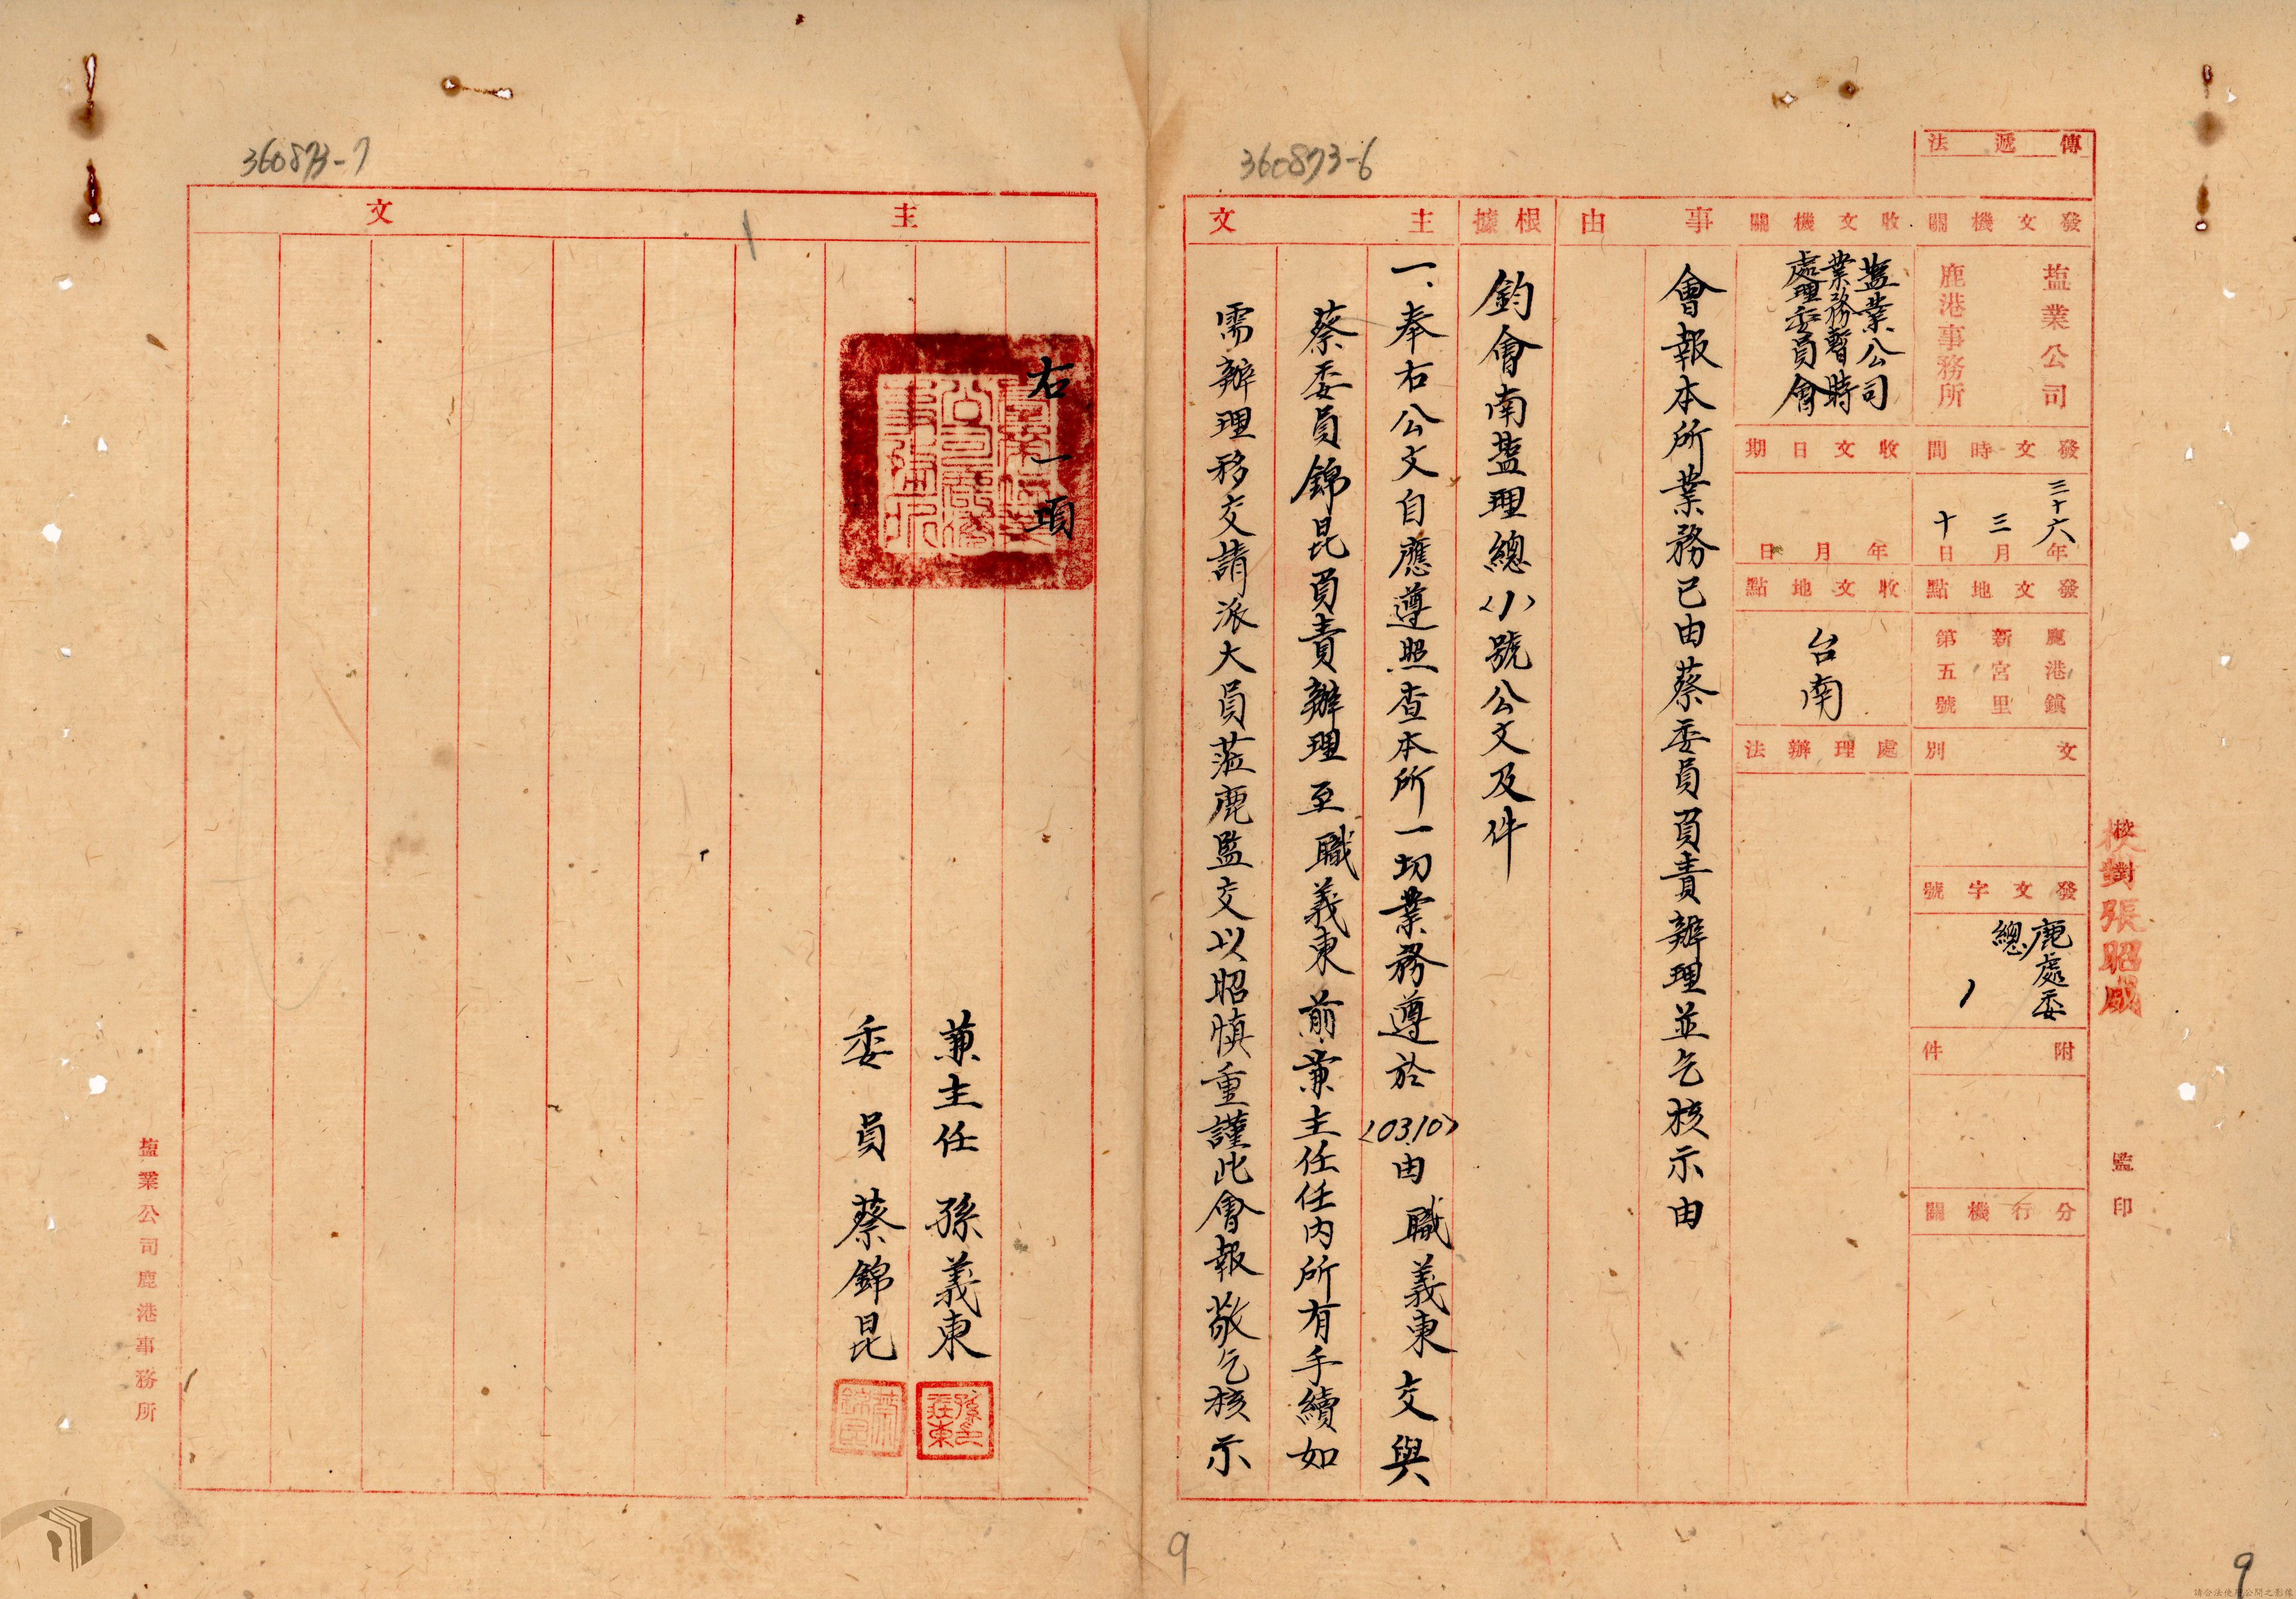 360873-6
傳遞法
發文機關
塩業公司
鹿港事務所
發文時間
三十六年
三月
十日
發文地點
鹿港鎮
新宮里
第五號
文別
發文字號
鹿處委
總
1
附件
分行機關
收文機關
塩業公司
業務暫時
處理委員會
收文日期
年月日
收文地點
台南
處理辦法
事由
會報本所業務已由蔡委員負責辦理並乞核示由
根據
鈞會南塩理總〈1〉號公文及件
主文
一、奉右公文自應遵照查本所一切業務遵於〈03.10〉由職義東交與
蔡委員錦昆負責辦理至職義東前兼主任任內所有手續如
需辦理移交請派大員蒞鹿監交以昭慎重謹此會報敬乞核示
校對張昭威
監印
9
9
360873-7
主文
右一項
兼主任孫義東
委員蔡錦昆
塩業公司鹿港事務所
請合法使用公開之影像